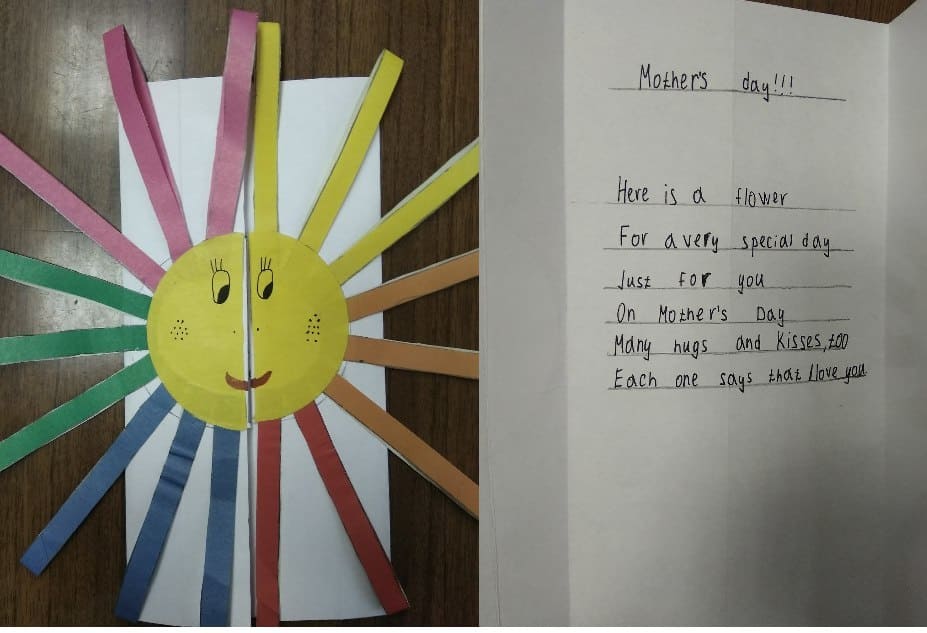 Mother's day!!!
Here is a flower
For a very special day
Just for you
On Mother's Day
Many hugs and kisses, too
Each one says that I love you